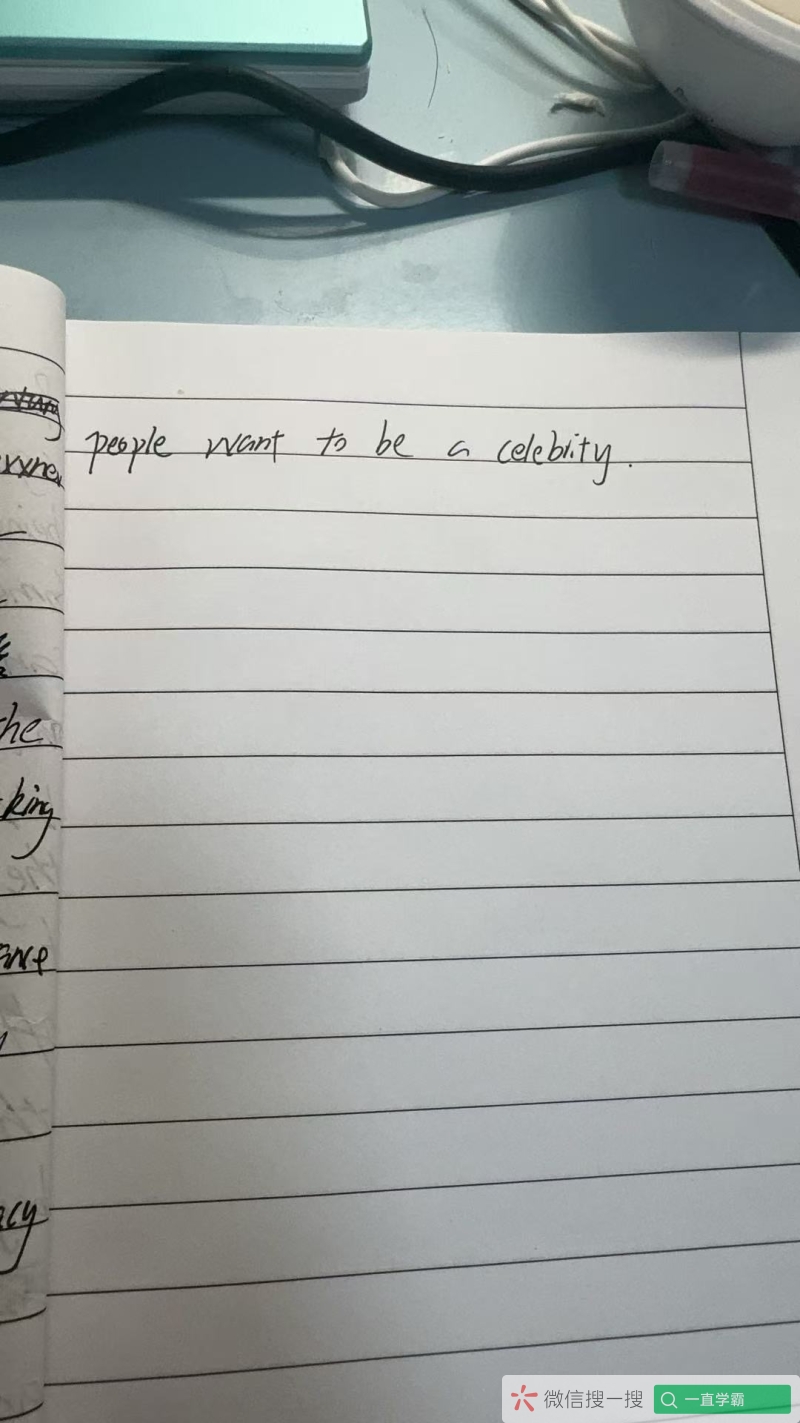 people want to be a celebrity.
the
king
acy
微信搜一搜
一直学霸